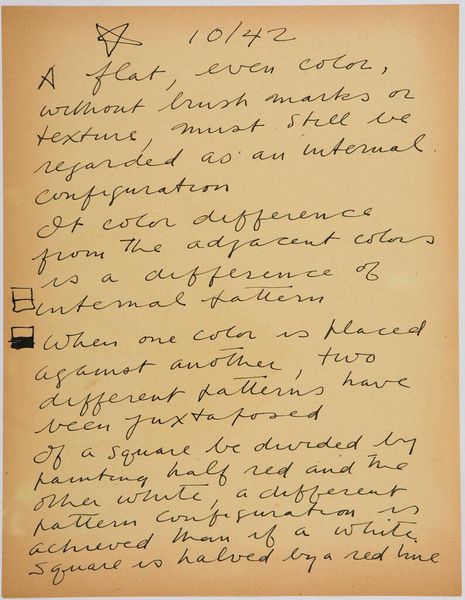 10/42
A flat, even color,
without brush marks or
texture, must still be
regarded as an internal
configuration
It color difference
from the adjacent colors
is a difference of
internal pattern
When one color is placed
against another, two
different patterns have
been juxtaposed
If a square be divided by
painting half red and the
other white, a different
pattern configuration is
achieved than if a white
square is halved by a red line